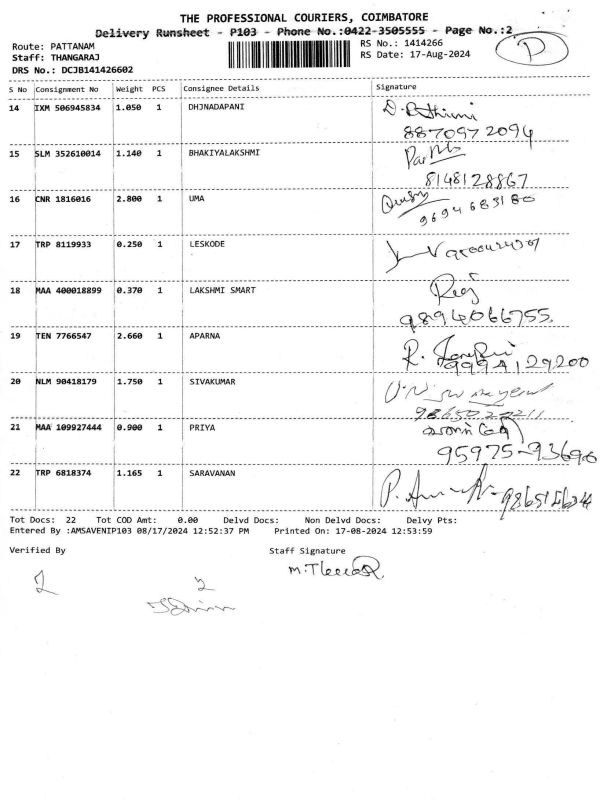 THE PROFESSIONAL COURIERS, COIMBATORE
Delivery Runsheet - P103 - Phone No.:0422-3505555 - Page No.:2
P
Route: PATTANAM
RS No.: 1414266
Staff: THANGARAJ
RS Date: 17-Aug-2024
DRS No.: DCJB141426602
S No Consignment No Weight PCS Consignee Details Signature
14 IXM 506945834 1.050 1 DHJNADAPANI
8870972094
15 SLM 352610014 1.140 1 BHAKIYALAKSHMI
8148128867
16 CNR 1816016 2.800 1 UMA
9694683180
17 TRP 8119933 0.250 1 LESKODE
18 MAA 400018899 0.370 1 LAKSHMI SMART
9894066755
19 TEN 7766547 2.660 1 APARNA
9994129200
20 NLM 90418179 1.750 1 SIVAKUMAR
21 MAA 109927444 0.900 1 PRIYA
95975-93696
22 TRP 6818374 1.165 1 SARAVANAN
Tot Docs: 22 Tot COD Amt: 0.00 Delvd Docs: Non Delvd Docs: Delvy Pts:
Entered By :AMSAVENIP103 08/17/2024 12:52:37 PM Printed On: 17-08-2024 12:53:59
Verified By Staff Signature